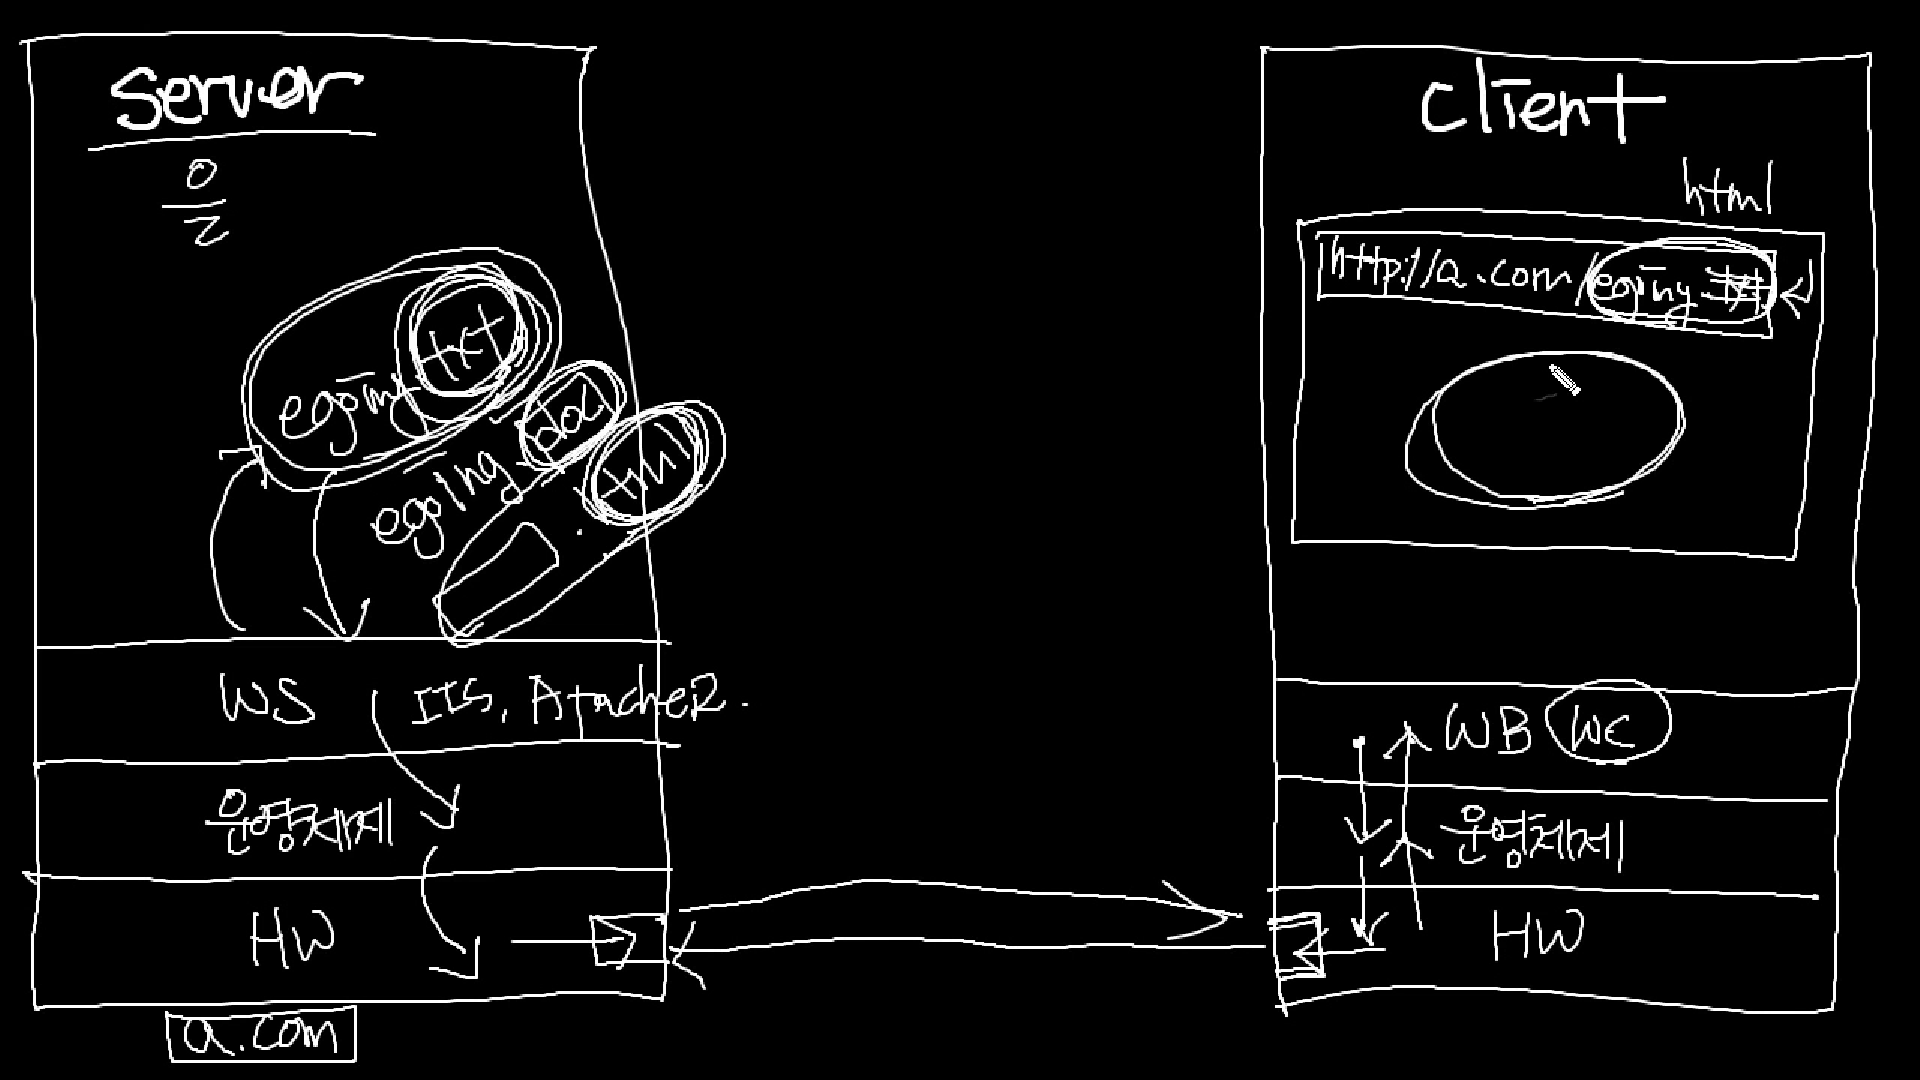 Server
egoing txt
egoing doc
html
WS IIS, Apache
운영체제
HW
a.com
Client
html
http://a.com/egoing.txt
WB WC
운영체제
HW